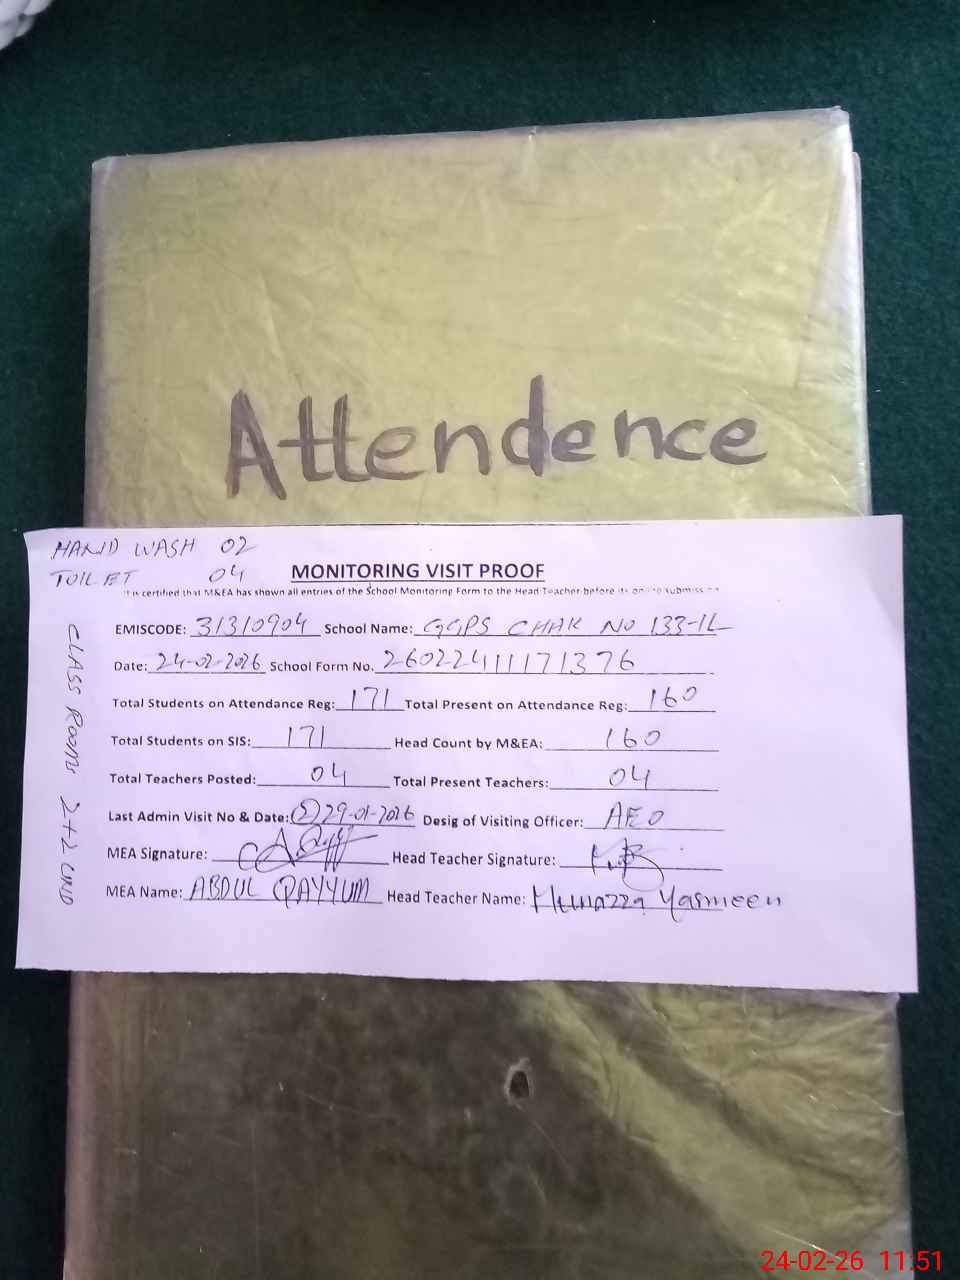 Attendence
HAND WASH 02
TOILET 04
MONITORING VISIT PROOF
It is certified that M&EA has shown all entries of the School Monitoring Form to the Head Teacher before its
EMISCODE: 31310904 School Name: GGPS CHAK NO 133-1L
Date: 24-02-2026 School Form No. 26022411171376
Total Students on Attendance Reg: 171 Total Present on Attendance Reg: 160
Total Students on SIS: 171 Head Count by M&EA: 160
Total Teachers Posted: 04 Total Present Teachers: 04
Last Admin Visit No & Date: (2) 29-01-2026 Desig of Visiting Officer: AEO
MEA Signature: Head Teacher Signature:
MEA Name: ABDUL QAYYUM Head Teacher Name: Munazza Yasmeen
CLASS ROOMS 2+2
24-02-26 11.51